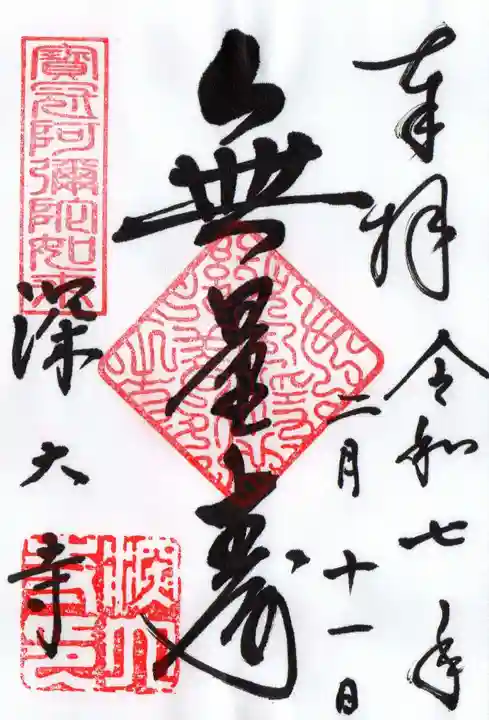 奉拝
令和七年
二月十一日
無量寿
寶冠阿彌陀如来
深大寺